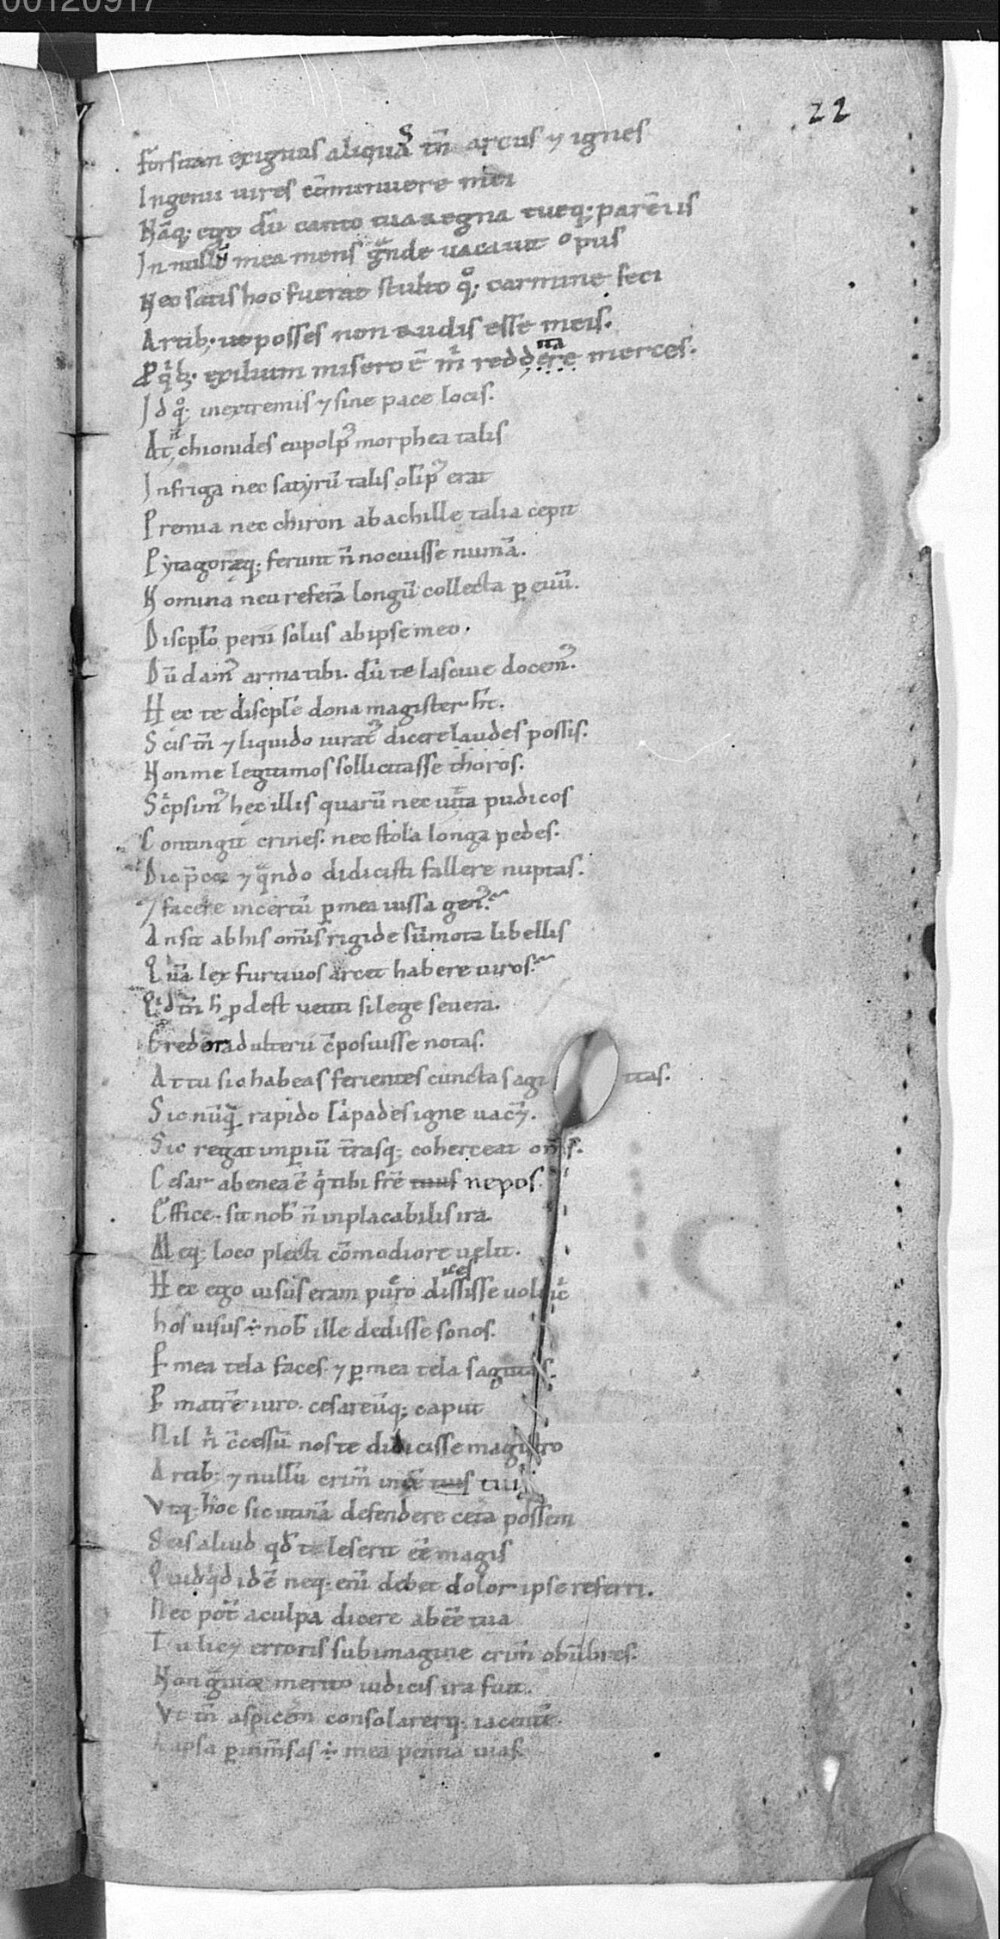 00120917
22
Forsitan exiguas aliquas tm̄ arcus ⁊ ignes
Ingenii uires cōminuere mei
Nāq; ego dū canto tua regna tueq; parentis
In nullū mea mens grande uacauit opus
Nec satis hoc fuerat stulto qͦq; carmine feci
Artib; ut posses non rudis esse meis.
P qͥb; exilium misero ē m̄ reddita merces.
Id qͦq; in extremis ⁊ sine pace locis.
At n̄ chionides eupolp᷒ morphea talis
In friga nec satyrū talis olīp᷒ erat
Premia nec chiron ab achille talia cepit
Pytagoręq; ferunt n̄ nocuisse numā.
Nomina neu referā longū collecta p euū.
Discplo perii solus ab ipse meo.
Dū dam᷒ arma tibi. dū te lasciue docem᷒.
Hec te discple dona magister ht̄.
Scis tm̄ ⁊ liquido iurat᷒ dicere laudes possis.
Non me legitimos sollicitasse thoros.
Scͥpsim᷒ hec illis quarū nec uitta pudicos
Contingit crines. nec stola longa pedes.
Dic p̄cor ⁊ qͣndo didicisti fallere nuptas.
⁊ facere incertū p mea iussa gen᷒.
An sit ab his om̄is rigide sūmota libellis
Quā lex furtiuos arcet habere uiros.
Qͥd tm̄ h pdest uetiti si lege seuera.
Credor adulterii cposuisse notas.
At tu sic habeas ferientes cuncta sagittas.
Sic nūqͣ rapido lāpades igne uacēt.
Sic regat inperiū t̄rasq; coherceat om̄s.
Cesar ab enea ē qͥ tibi frē tuus nepos.
Effice. sit nob n̄ inplacabilis ira.
Meq; loco plecti cōmodiore uelit.
Hec ego uisus eram puero dixisse uolucͥ
hos uisus ÷ nob ille dedisse sonos.
P mea tela faces ⁊ p mea tela sagittas.
P matrē iuro. cesareūq; caput
Nil n̄ ccessū nos te didicisse magistro
Artib; ⁊ nullū crim̄ inēē tuis tuis
Vtq; hoc sic utinā defendere cetera possem
Scis aliud qd te leserit eē magis
Quidqͥd id ē neq; enī debet dolor ipse referri.
Nec potes a culpa dicere abeē tua
Tu licet erroris sub imagine crim̄ obūbres.
Non grauior merito iudicis ira fuit.
Vt tm̄ aspicerem consolarerq; iacentē.
Lapsa p inm̄sas ÷ mea penna uias.